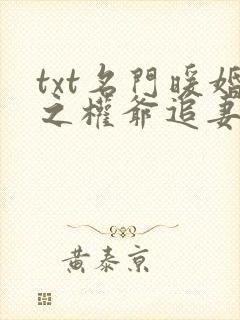 txt名門暖婚
之權爺追妻
黃泰京